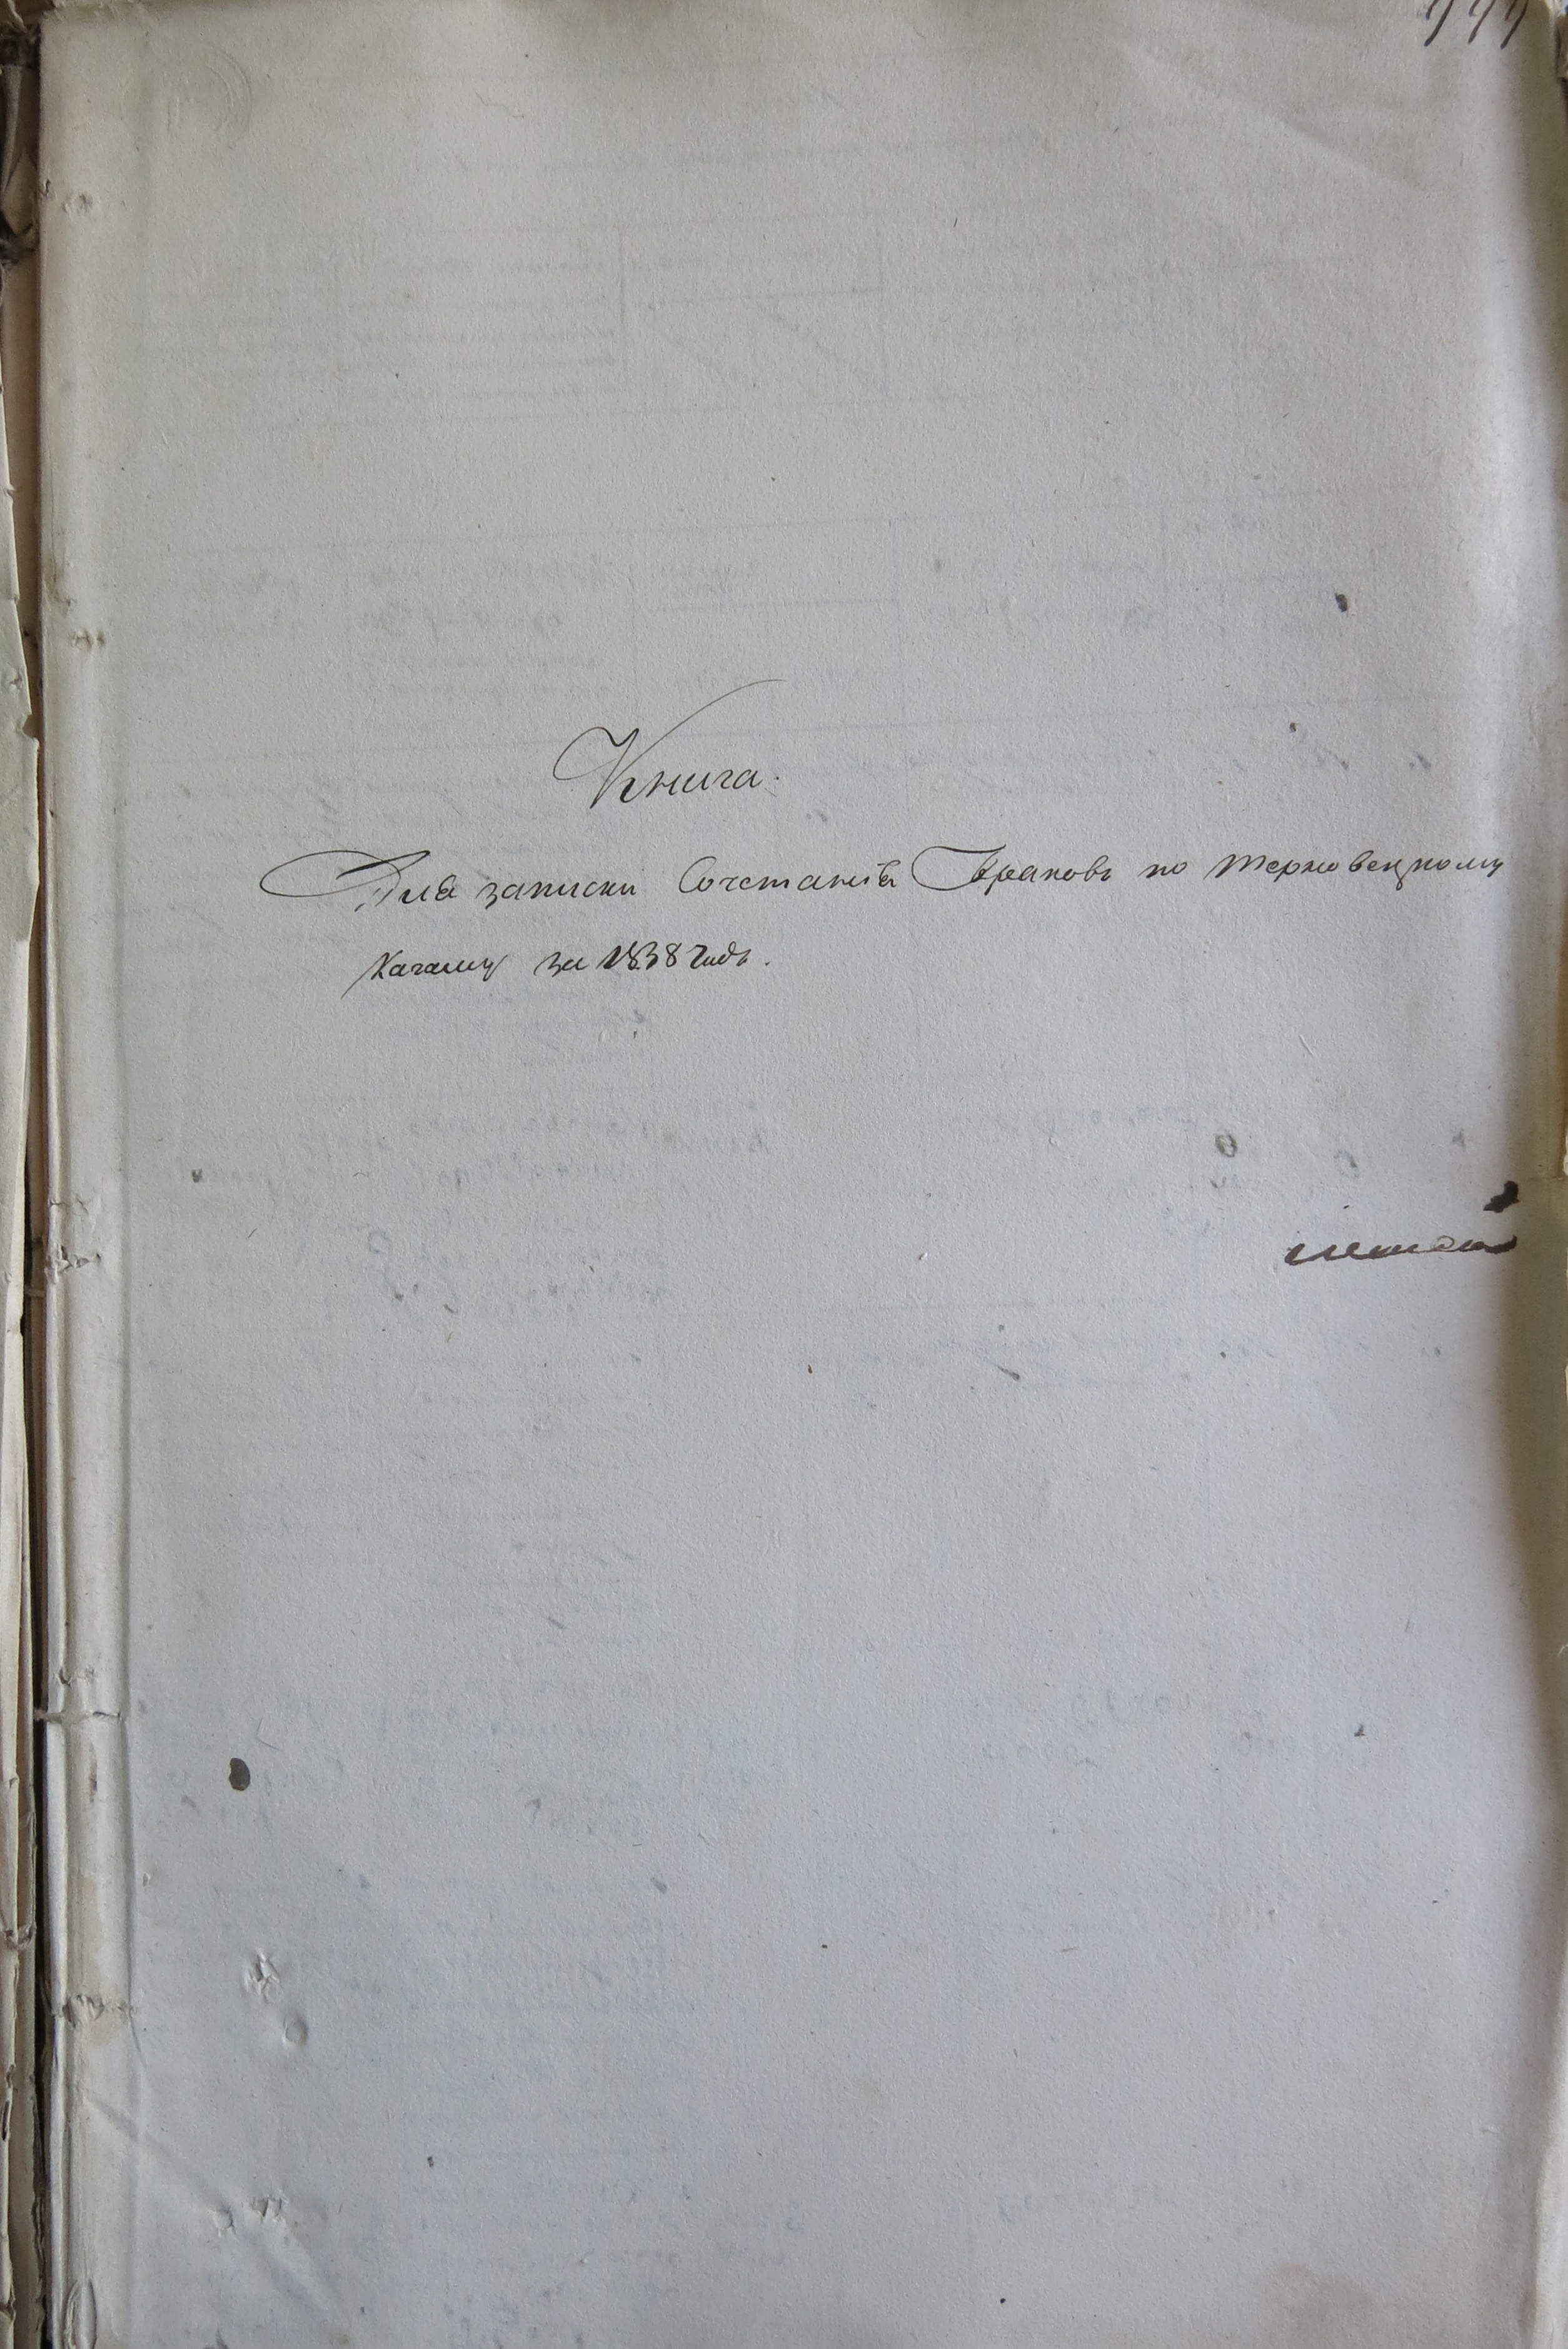 Книга.
Для записки Сочетанія Браковъ по Терновецкому
Кагалу за 1838 годъ.